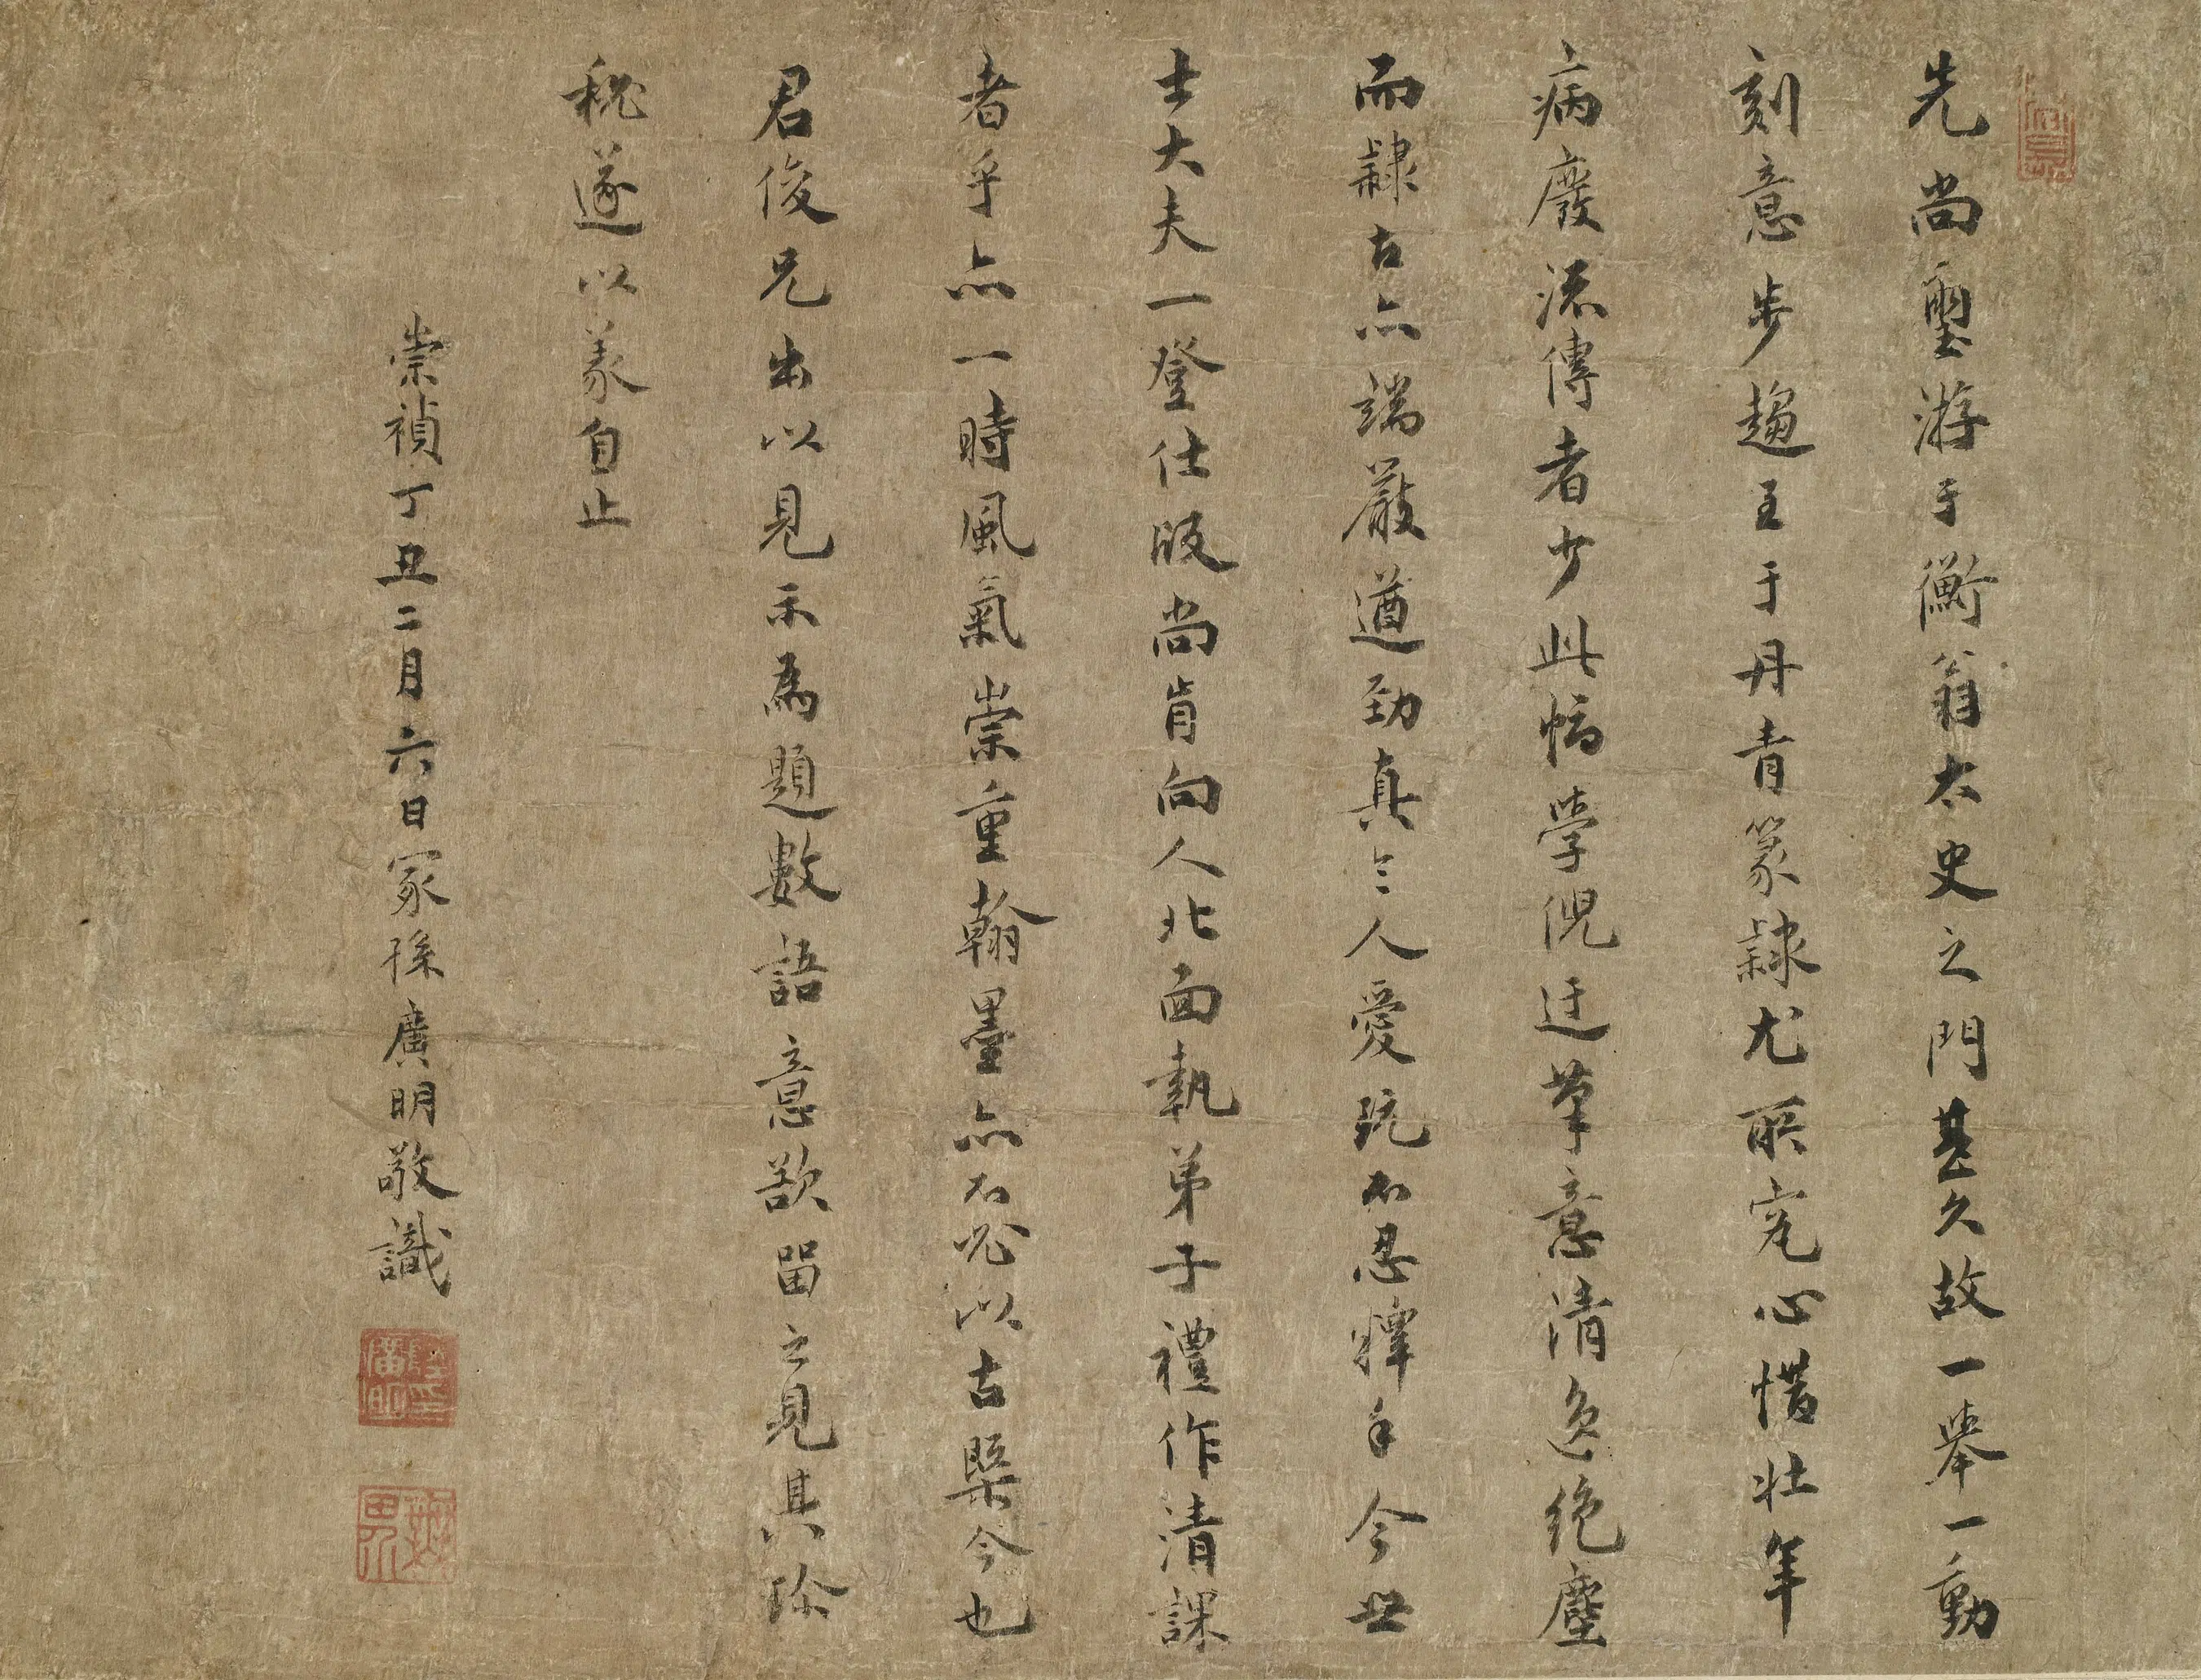 先尚璽游于衡翁太史之門甚久故一舉一動
刻意步趨至于丹青篆隸尤所究心惜壯年
病廢流傳者少此幅學倪迂筆意清逸絕塵
而隸古亦端嚴遒勁真令人愛玩不忍釋手今世
士大夫一登仕版尚肯向人北面執弟子禮作清課
者乎亦一時風氣崇重翰墨亦不必以古槩今也
君俊兄出以見示為題數語意欲留之見其珍
秘遂以義自止
崇禎丁丑二月六日冢孫廣明敬識